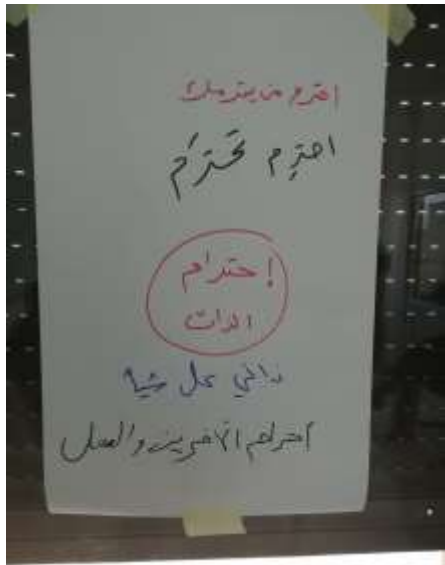 احترم من يحترمك
احترم تحترم
إحترام
الذات
احترام الآخرين والعمل